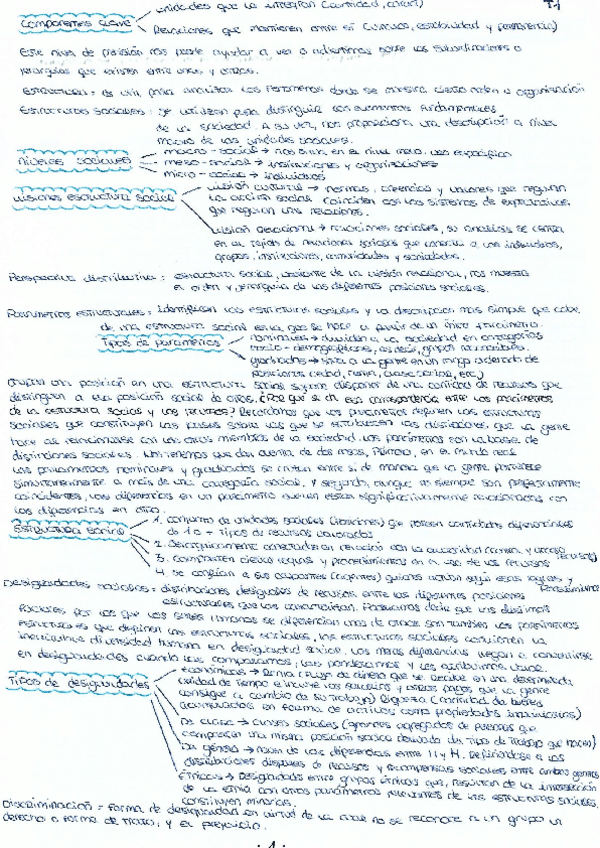 unidades que la integran (cantidad, orden) T-1
Componentes clave
Relaciones que mantienen entre sí (estabilidad y permanencia)
Este nivel de precisión nos puede ayudar a ver o adentrarnos sobre las subordinaciones o
jerarquías que existen entre unos y otros.
Estructura = es útil para analizar los fenómenos donde se muestra cierto orden u organización
Estructuras sociales = se utilizan para distinguir los elementos fundamentales
de una sociedad. A su vez, nos proporciona una descripción a nivel
macro de las unidades sociales.
Niveles sociales
macro-social → nos da en el nivel más
meso-social → instituciones y organizaciones
micro-social → individuos
Visiones estructura social
visión cultural → normas, creencias y valores que regulan
la acción social. Coinciden con los sistemas de expectativas
que regulan las relaciones.
visión relacional → relaciones sociales, su análisis se centra
en el tejido de relaciones sociales que conecta a los individuos,
grupos, instituciones, comunidades y sociedades.
Perspectiva distributiva = estructura social, variante de la visión relacional, nos muestra
el orden y jerarquía de las diferentes posiciones sociales.
Parámetros estructurales = Identifican las estructuras sociales y la descripción más simple que cabe
de una estructura social es la que se hace a partir de un único parámetro.
Tipos de parámetros
nominales → dividen a la sociedad en categorías
socio-demográficas,
graduados → sitúa a la gente en un rango ordenado de
posiciones (edad, clase social, etc.)
Ocupar una posición en una estructura social supone disponer de una cantidad de recursos que
distinguen a esa posición social de otras. ¿Por qué se da esa correspondencia entre los parámetros
de la estructura social y los recursos? Recordamos que los parámetros definen las estructuras
sociales que constituyen las bases sobre las que se establecen las distinciones que la gente
hace al relacionarse con los otros miembros de la sociedad. Los parámetros son la base de
distinciones sociales. Los tenemos que dar cuenta de dos cosas, Primero, en el mundo real
los parámetros nominales y graduados se cruzan entre sí de manera que la gente pertenece
simultáneamente a más de una categoría social. Y segundo, aunque no siempre son perfectamente
coincidentes, las diferencias en un parámetro suelen estar significativamente relacionadas con
las diferencias en otro.
Estructura social
1. conjunto de unidades sociales (posiciones) que poseen cantidades diferenciales
de 1 o + tipos de recursos valorados
2. Jerárquicamente conectadas en relación con la autoridad (control y acceso recursos)
3. comparten ciertas reglas y procedimientos en el uso de los recursos
4. se confían a sus ocupantes (agentes) quienes actúan según esas reglas y procedimientos
Desigualdades sociales = distribuciones desiguales de recursos entre las diferentes posiciones
estructurales que las caracterizan. Podríamos decir que los distintos
factores por los que los seres humanos se diferencian unos de otros son también los parámetros
estructurales que definen las estructuras sociales, las estructuras sociales convierten la
diversidad humana en desigualdad social. Las meras diferencias llegan a convertirse
en desigualdades cuando las comparamos, las ponderamos y les atribuimos valor.
Tipos de desigualdades
económicas → Renta (flujo de dinero que se recibe en una determinada
unidad de tiempo e incluye los salarios y otros pagos que la gente
consigue a cambio de su trabajo) Riqueza (cantidad de bienes
acumulados en forma de activos como propiedades inmobiliarias)
De clase → clases sociales (agregados de personas que
comparten una misma posición social derivada del tipo de trabajo que hacen)
De género → nacen de las diferencias entre H y M. Refiriéndose a las
distribuciones dispares de recursos y recompensas sociales entre ambos géneros
Étnicas → Desigualdades entre grupos étnicos que resultan de la intersección
de la etnia con otros parámetros relevantes de las estructuras sociales,
constituyen minorías.
Discriminación = forma de desigualdad en virtud de la cual no se reconoce a un grupo un
derecho o forma de trato, y el prejuicio.
· 1 ·